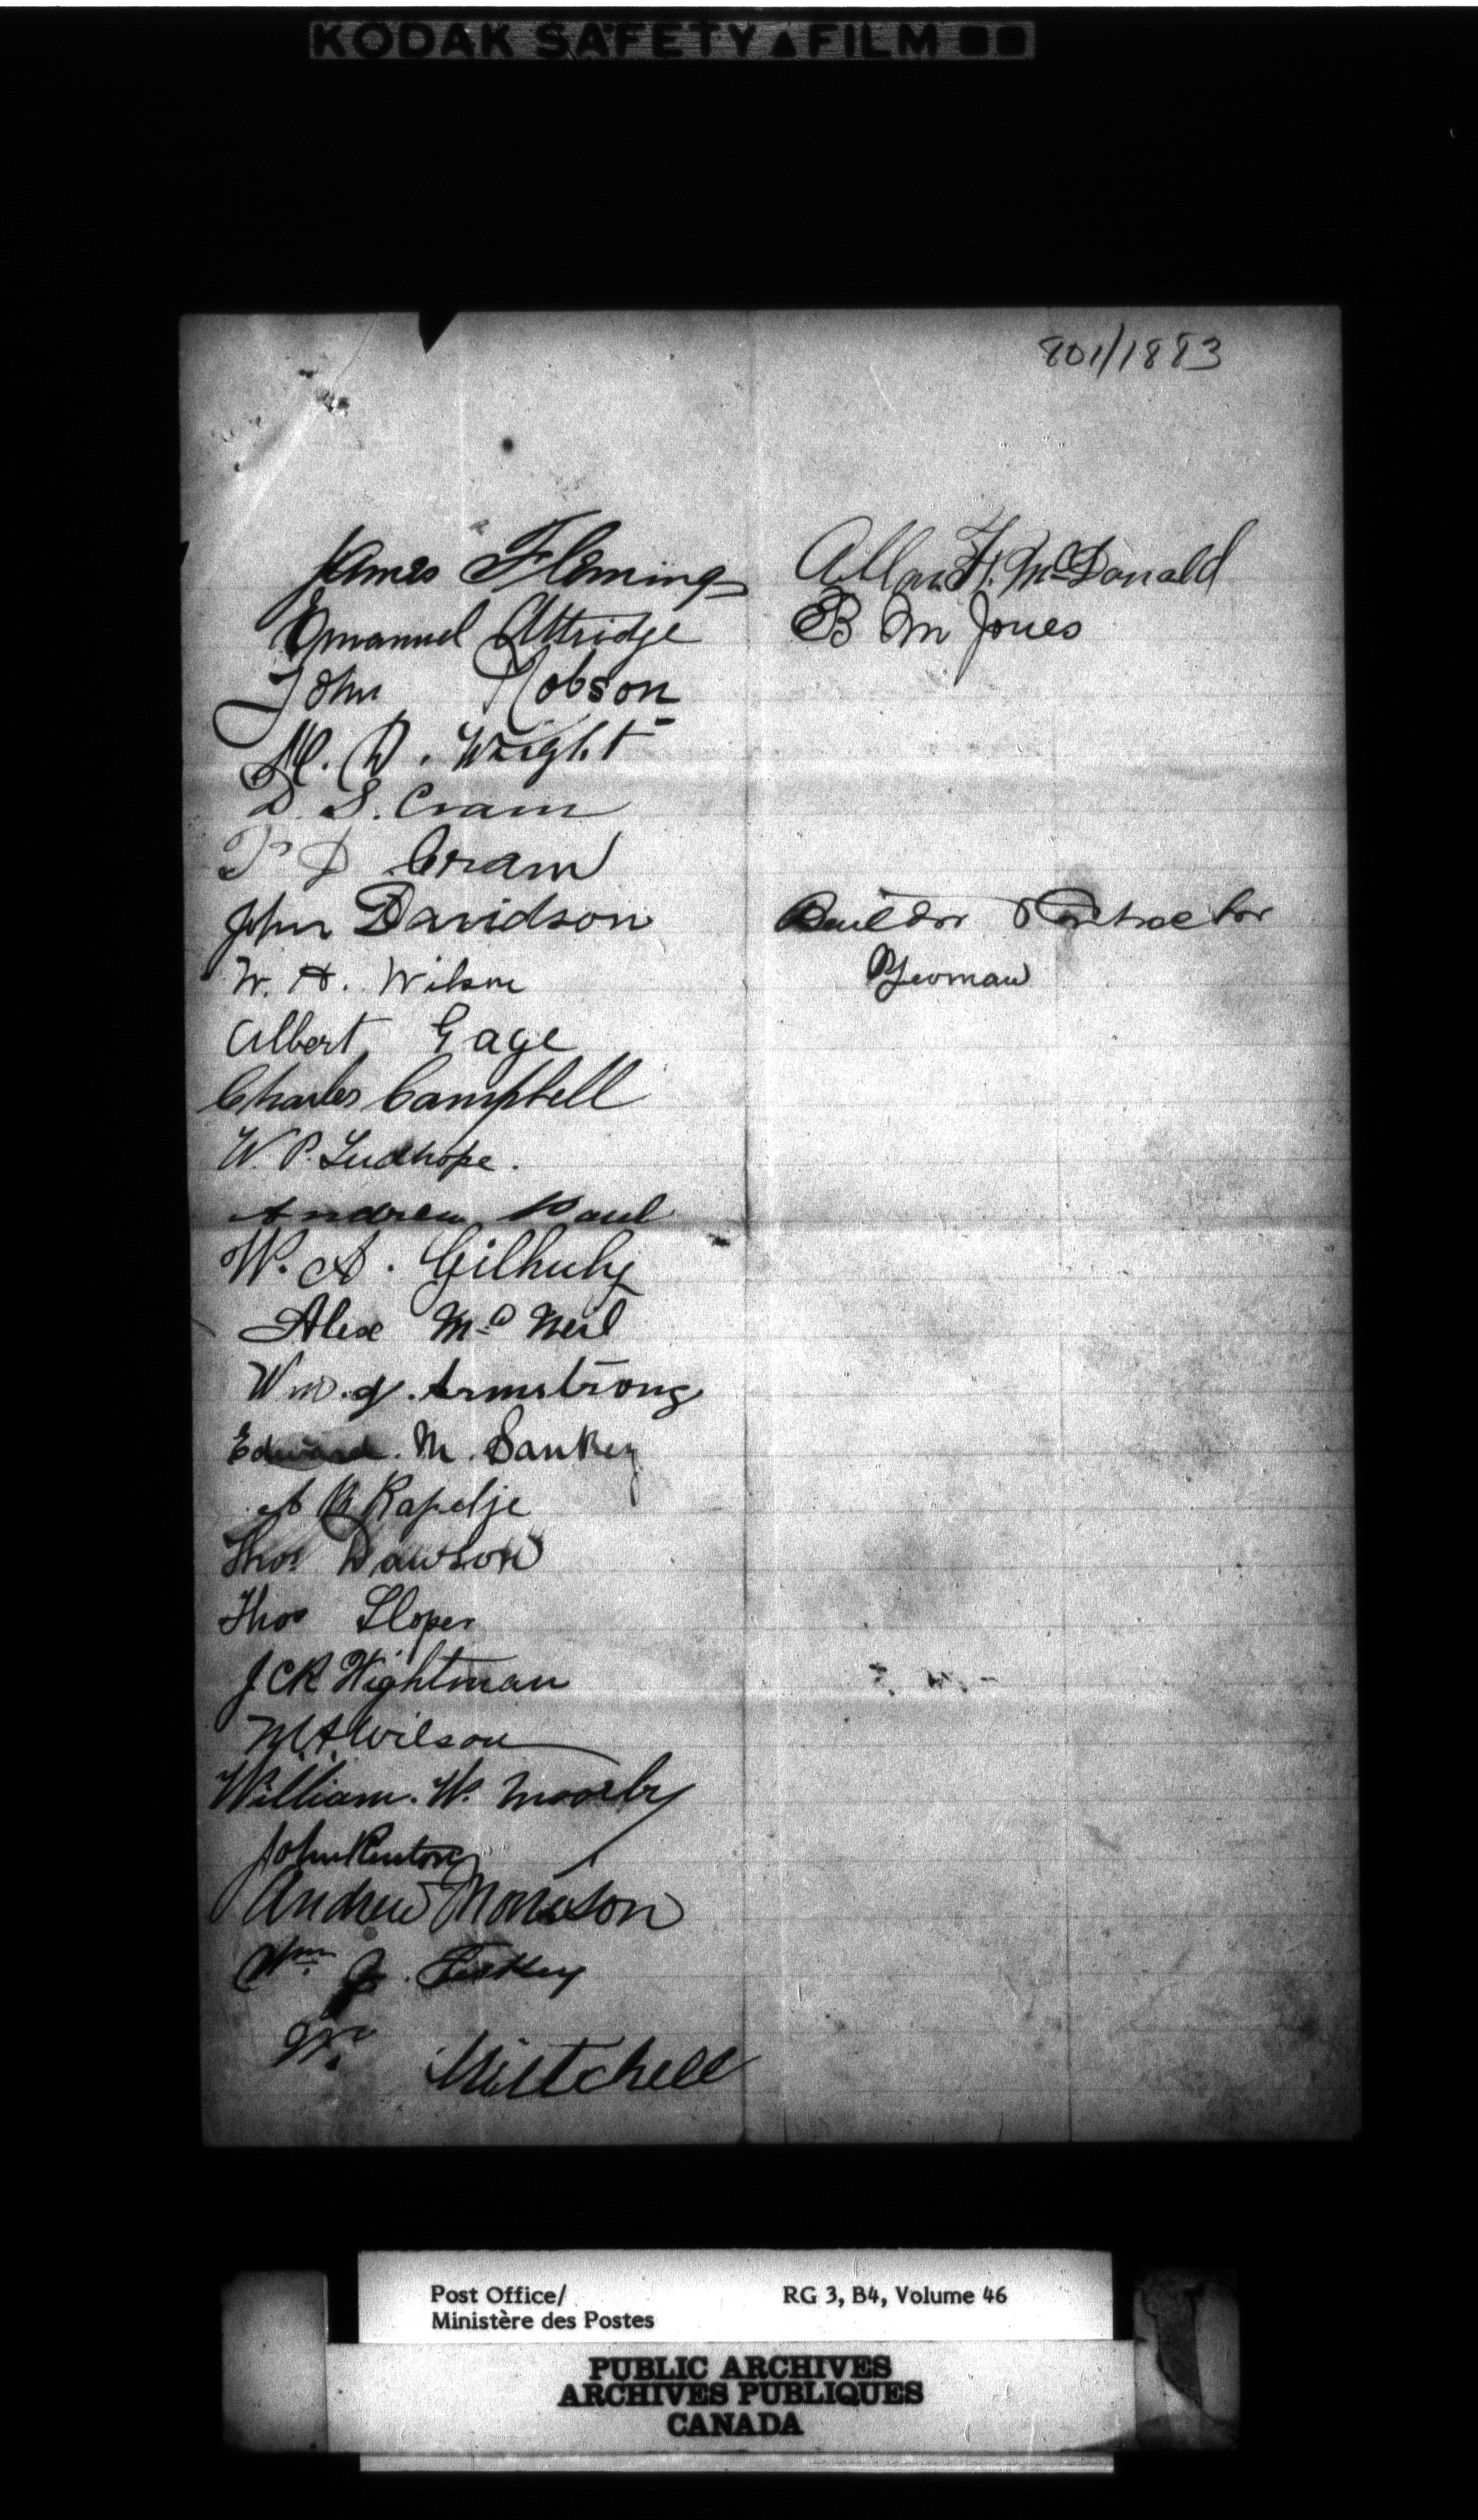 KODAK SAFETY FILM
801/1883
James Fleming Allan F. McDonald
Emanuel Attridge B M Jones
John Robson
M. D. Wright
D. S. Cram
P D Cram
John Davidson Builder Contractor
W. H. Wilson Yeoman
Albert Gage
Charles Campbell
W. P. Ludhope.
Andrew Paul
W. A. Gilhuly
Alex McNeil
Wm. J. Armstrong
Edward. M. Sankey
A B Rapelje
Thos Dawson
Thos Sloper
J C R Wightman
M A Wilson
William. W. Moorby
John Renton
Andrew Morrison
Wm J.
W. Mitchell
Post Office/ RG 3, B4, Volume 46
Ministère des Postes
PUBLIC ARCHIVES
ARCHIVES PUBLIQUES
CANADA